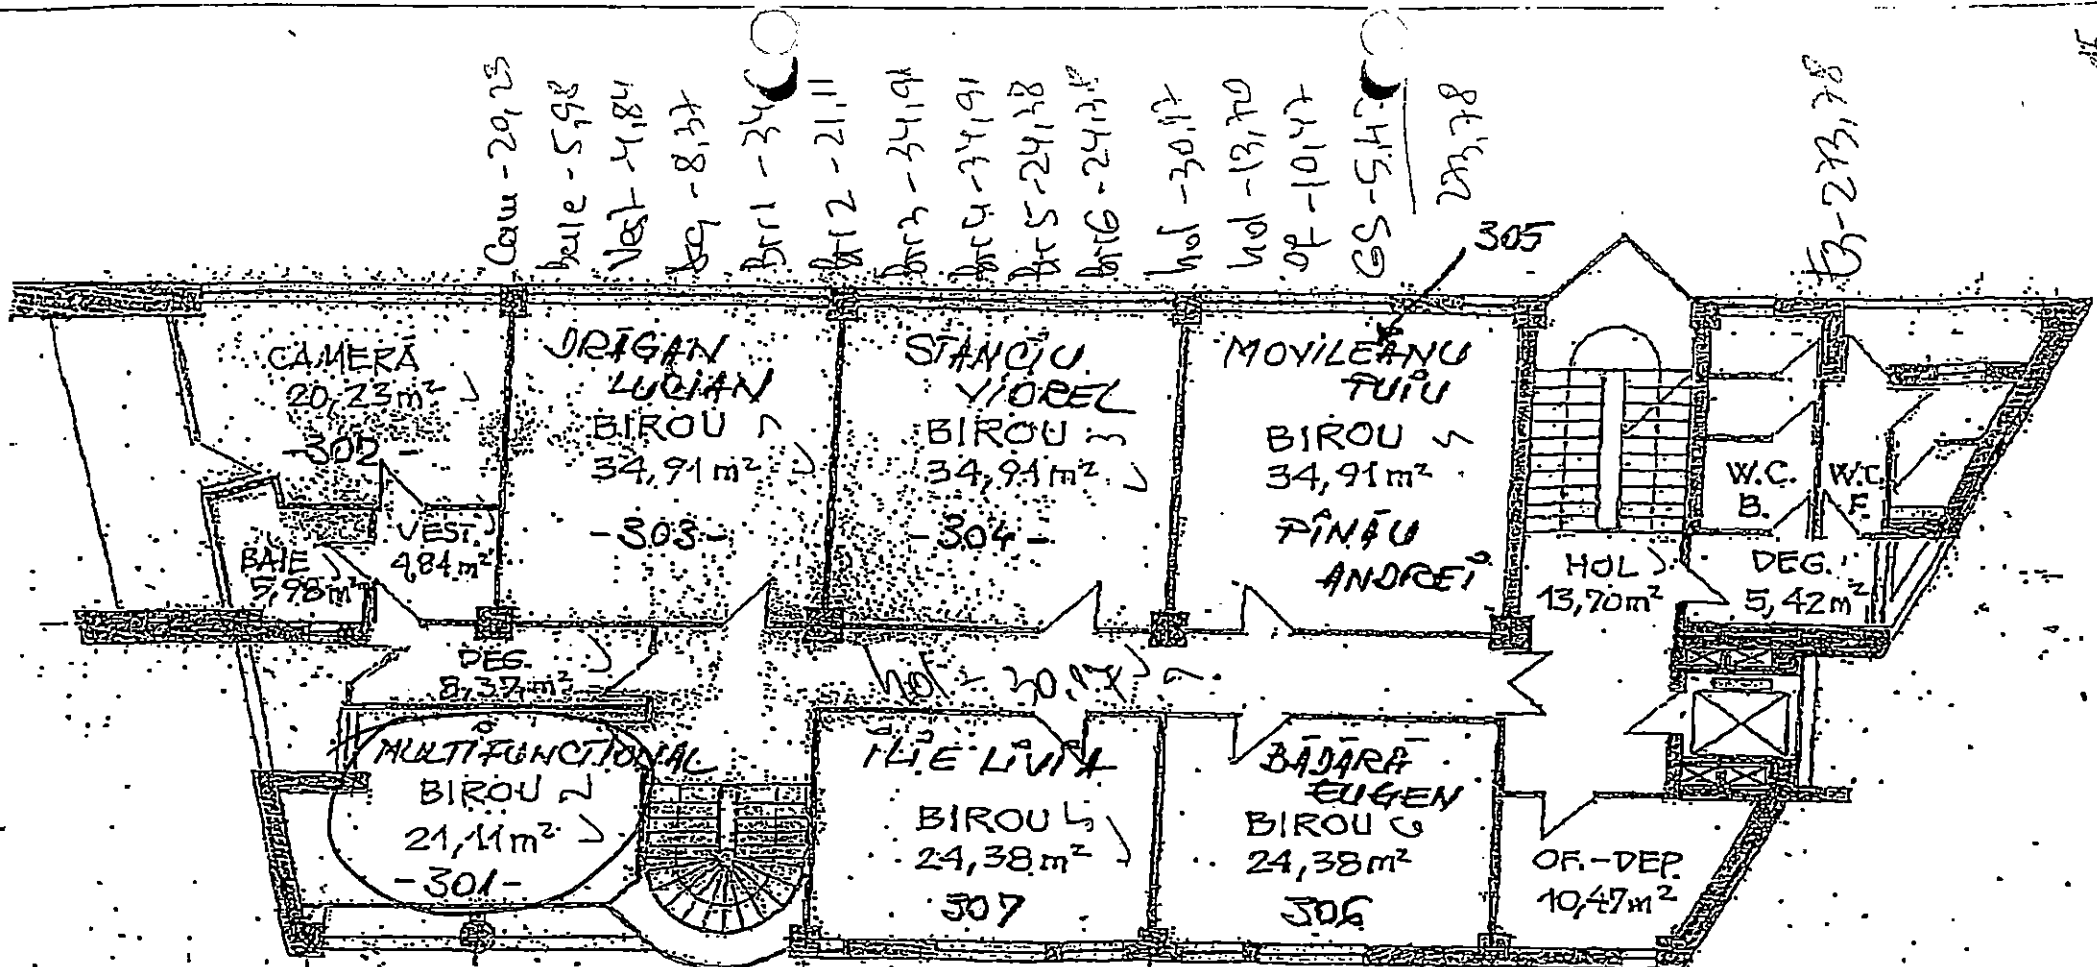 Cam - 20,23
baie - 5,98
Vest - 4,84
Deg - 8,37
Br 1 - 34
Br 2 - 21,11
Br 3 - 34,91
Br 4 - 34,91
Br 5 - 24,38
Br 6 - 24,38
hol - 30,17
hol - 13,70
OF - 10,47
GS - 5,42
273,78
E3 - 273,78
305
CAMERĂ
20,23 m²
- 302 -
BAIE
5,98 m²
VEST.
4,84 m²
DRĂGAN
LUCIAN
BIROU
34,91 m²
- 303 -
STANCIU
VIOREL
BIROU 3
34,91 m²
- 304 -
MOVILEANU
PUIU
BIROU 4
34,91 m²
PÎNĂU
ANDREI
HOL
13,70 m²
W.C.
B.
W.C.
F.
DEG.
5,42 m²
DEG.
8,37 m²
hol - 30,17
MULTIFUNCȚIONAL
BIROU 2
21,11 m²
- 301 -
ILIE LIVIA
BIROU 5
24,38 m²
307
BĂDĂRĂ
EUGEN
BIROU 6
24,38 m²
306
OF.-DEP.
10,47 m²